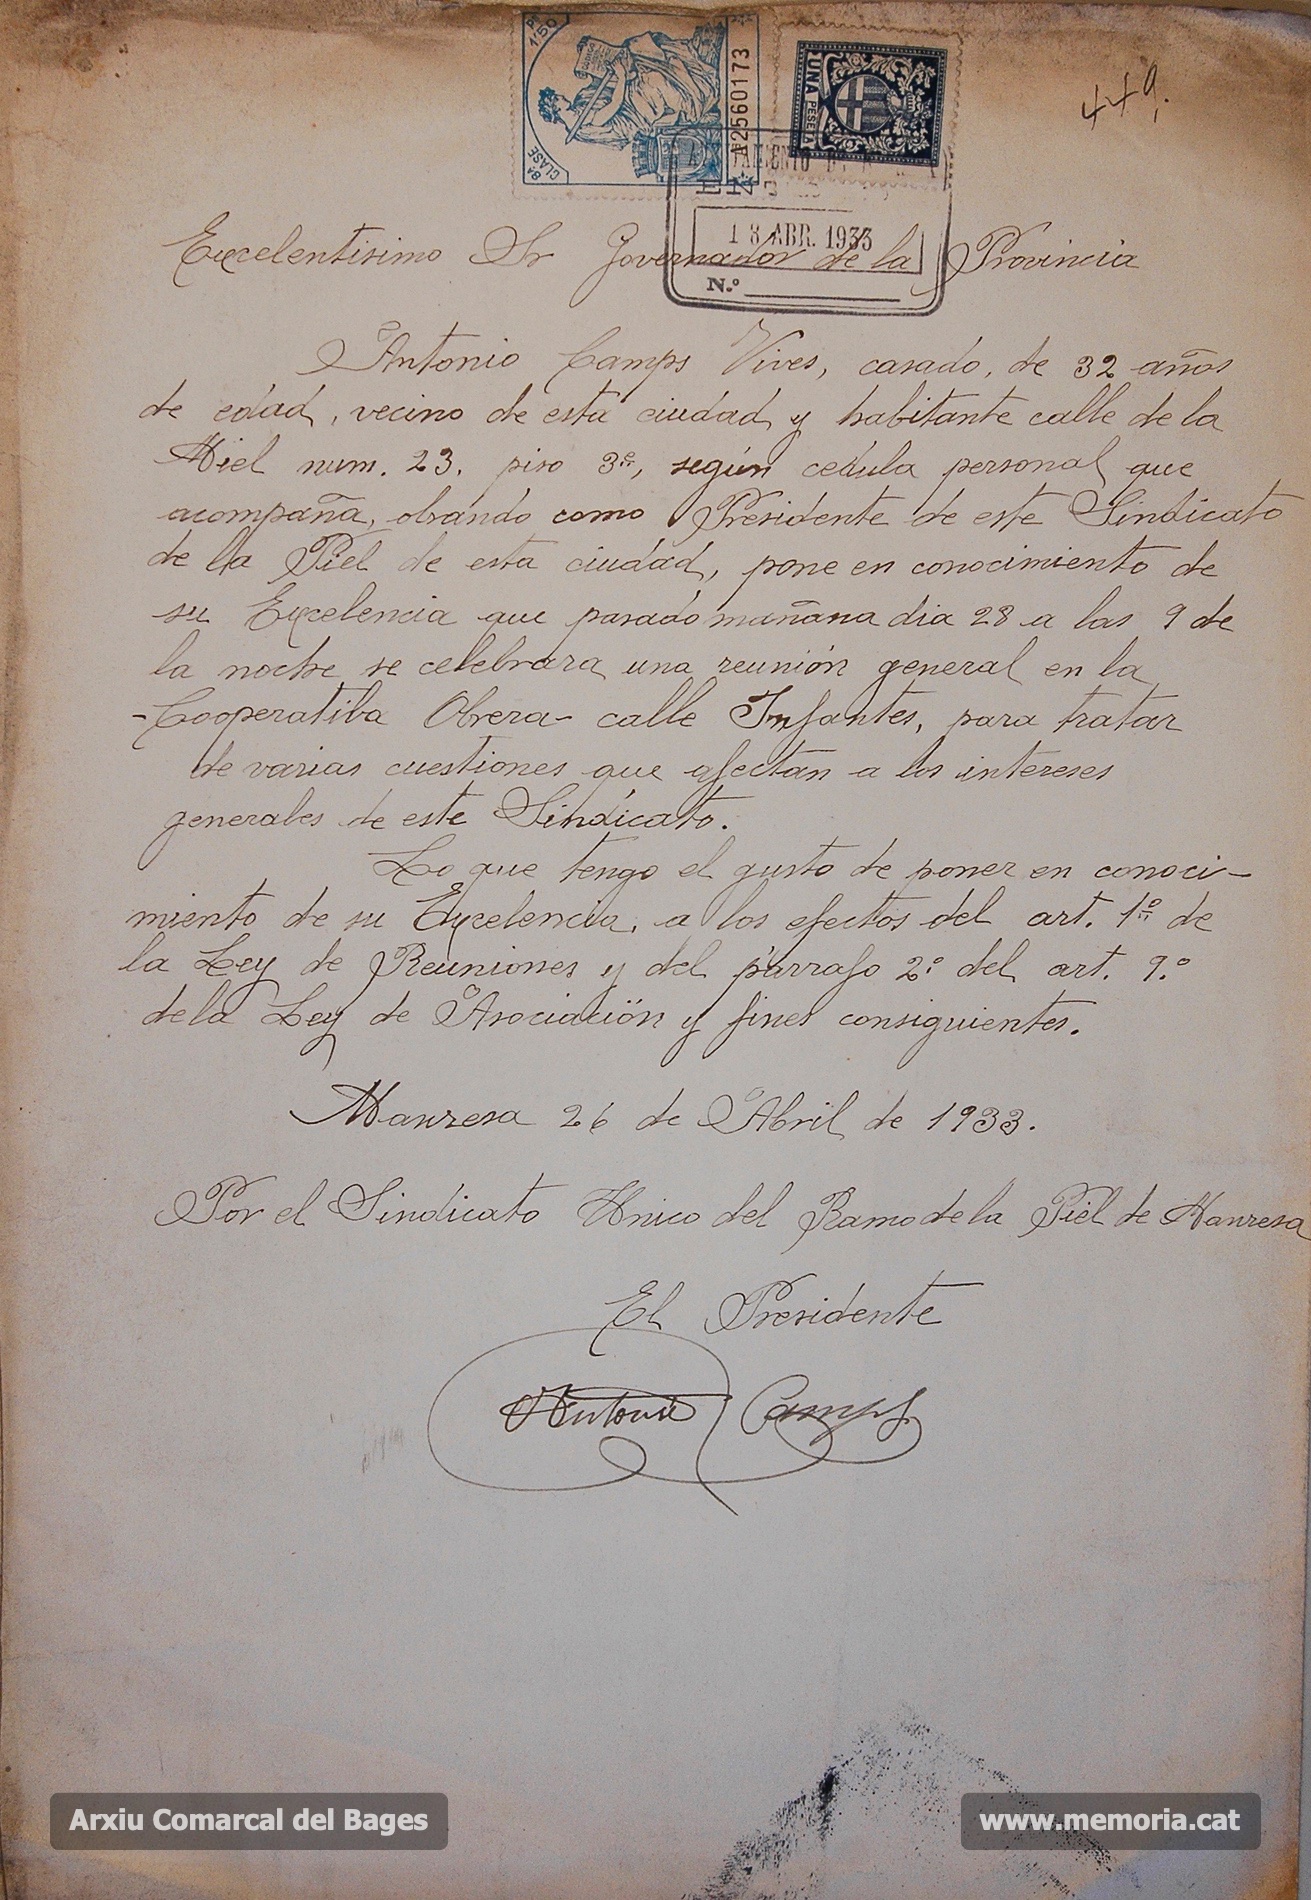 Pts 1'50
8ª CLASE
A2560173
UNA PESETA
449.
18 ABR. 1933
N.º
Excelentisimo Sr Governador de la Provincia
Antonio Camps Vives, casado, de 32 años
de edad, vecino de esta ciudad y habitante calle de la
Miel num. 23. piso 3º, según cedula personal que
acompaña, obrando como Presidente de este Sindicato
de la Piel de esta ciudad, pone en conocimiento de
su Excelencia que pasado mañana dia 28 a las 9 de
la noche se celebrara una reunión general en la
-Cooperatiba Obrera- calle Infantes, para tratar
de varias cuestiones que afectan a los intereses
generales de este Sindicato.
Lo que tengo el gusto de poner en conoci-
miento de su Excelencia, a los efectos del art. 1º de
la Ley de Reuniones y del párrafo 2º del art. 9.º
de la Ley de Asociación y fines consiguientes.
Manresa 26 de Abril de 1933.
Por el Sindicato Unico del Ramo de la Piel de Manresa
El Presidente
Antonio Camps
Arxiu Comarcal del Bages
www.memoria.cat